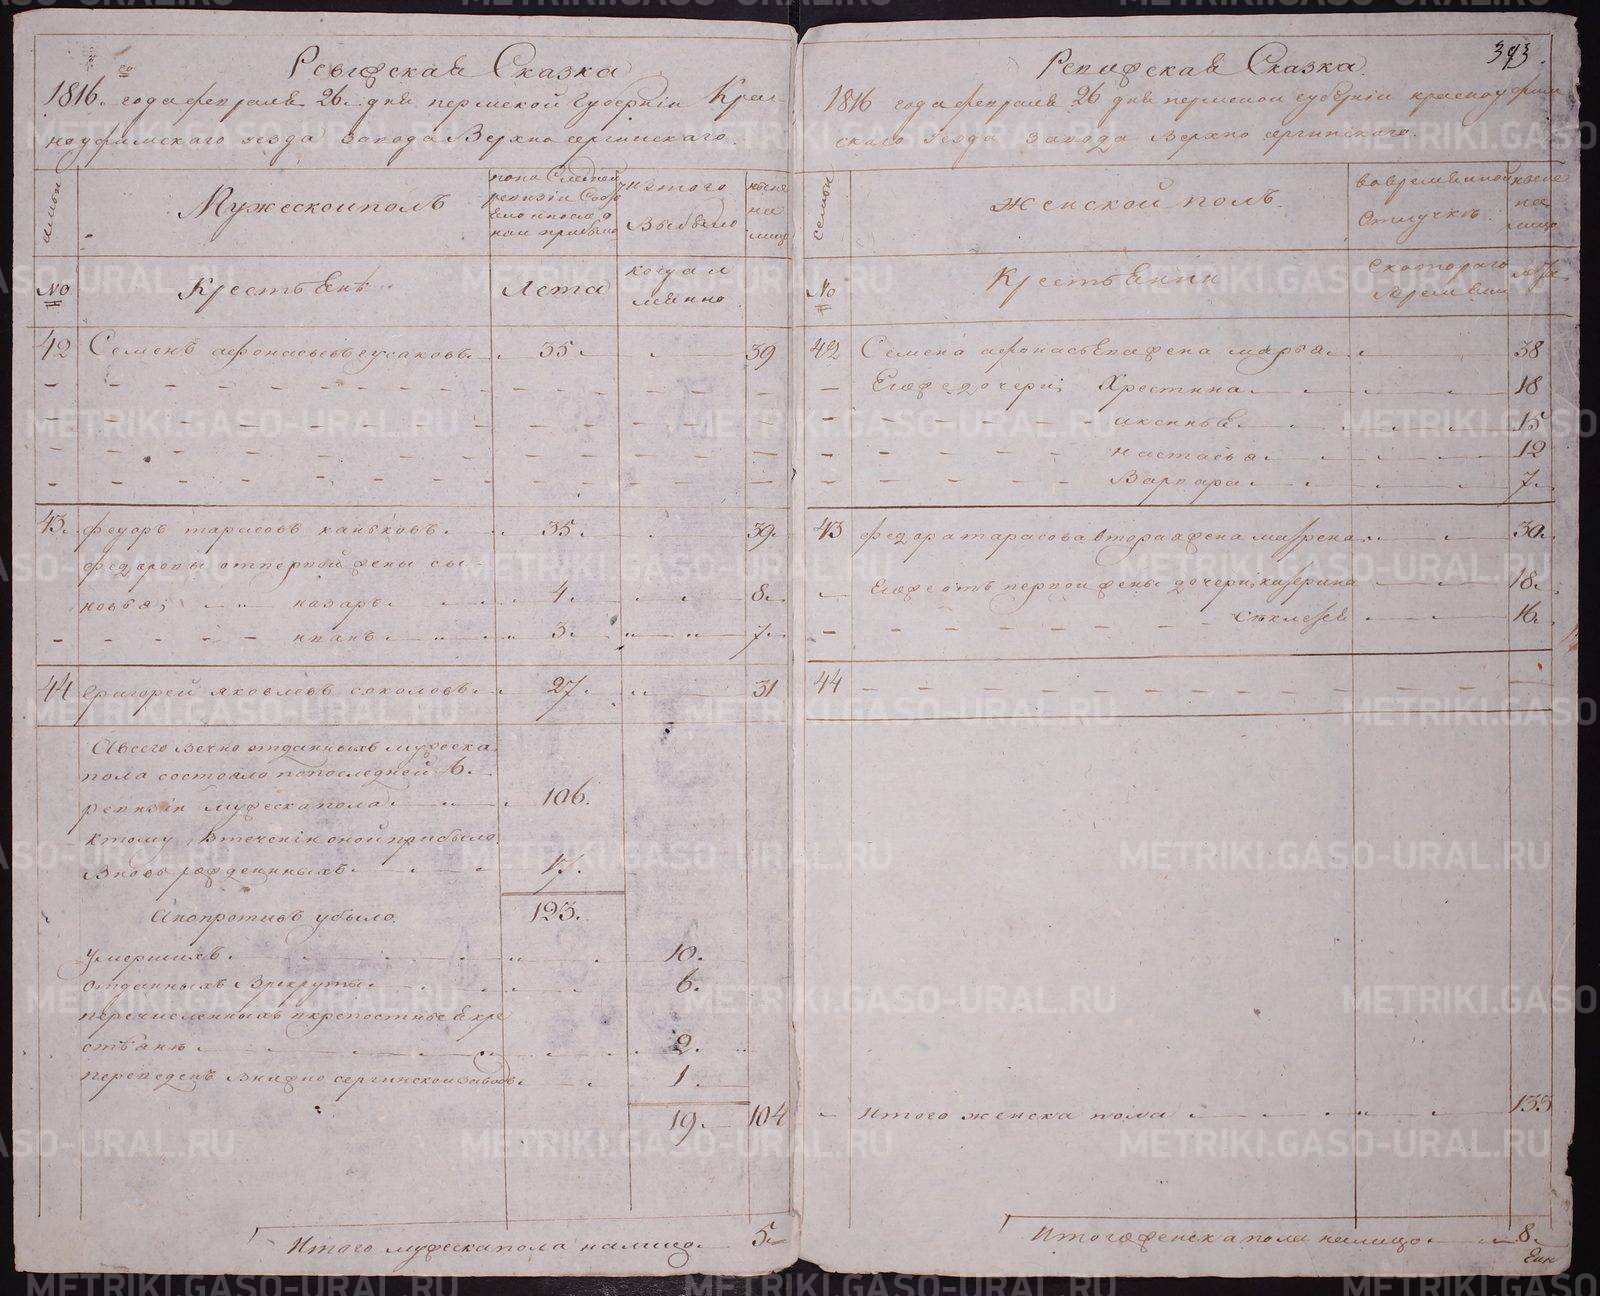 Ревижская Сказка
1816. года февраля 26. дня пермской Губернiи Крас
ноуфимского уезда Завода Верхно сергинского.
семьи
Мужеской полъ
изъ того
Выбыло
ныне
на
лицо
No
Крестьянѣ
Лета
когда и
имянно
42 Семенъ афонасьевъ гусаковъ 35 39
43. федоръ тарасовъ ханьковъ 35 39.
федоровы от первой жены сы
новья; назаръ 4. 8.
иванъ 3. 7.
44 григорей яковлевъ соколовъ 27. 31
А всего вечно отданныхъ мужеска
пола состояло по последней 6.
ревизiи мужеска пола 106.
к тому в теченiи оной прибыло
Вново рожденныхъ 17.
123.
А напротивъ убыло.
умершихъ 10.
отданныхъ в рекруты 6.
перечисленныхъ в крепостные кре
стьяня 2.
переведенъ в нижно сергинской заводъ 1.
19. 104
Итого мужеска пола налицо 5.
393.
Ревижская Сказка.
1816 года февраля 26 дня пермской губернiи красноуфим
скаго уезда завода Верхно сергинскаго.
Семьи
Женской полъ.
во временной
Отлучкѣ
ныне
на
лицо
No
Крестьянки
С котораго
времени
лета
42 Семена афонасьева жена марья 38
Егоже дочери; Хрестина 18
аксинья 15
настасья 12
Варвара 7.
43 федора тарасова втора жена маѳрена 30.
Егоже отъ первой жены дочери; каѳерина 18.
Фекла 16.
44
итого женска пола 135
Итого женска пола налицо 8.